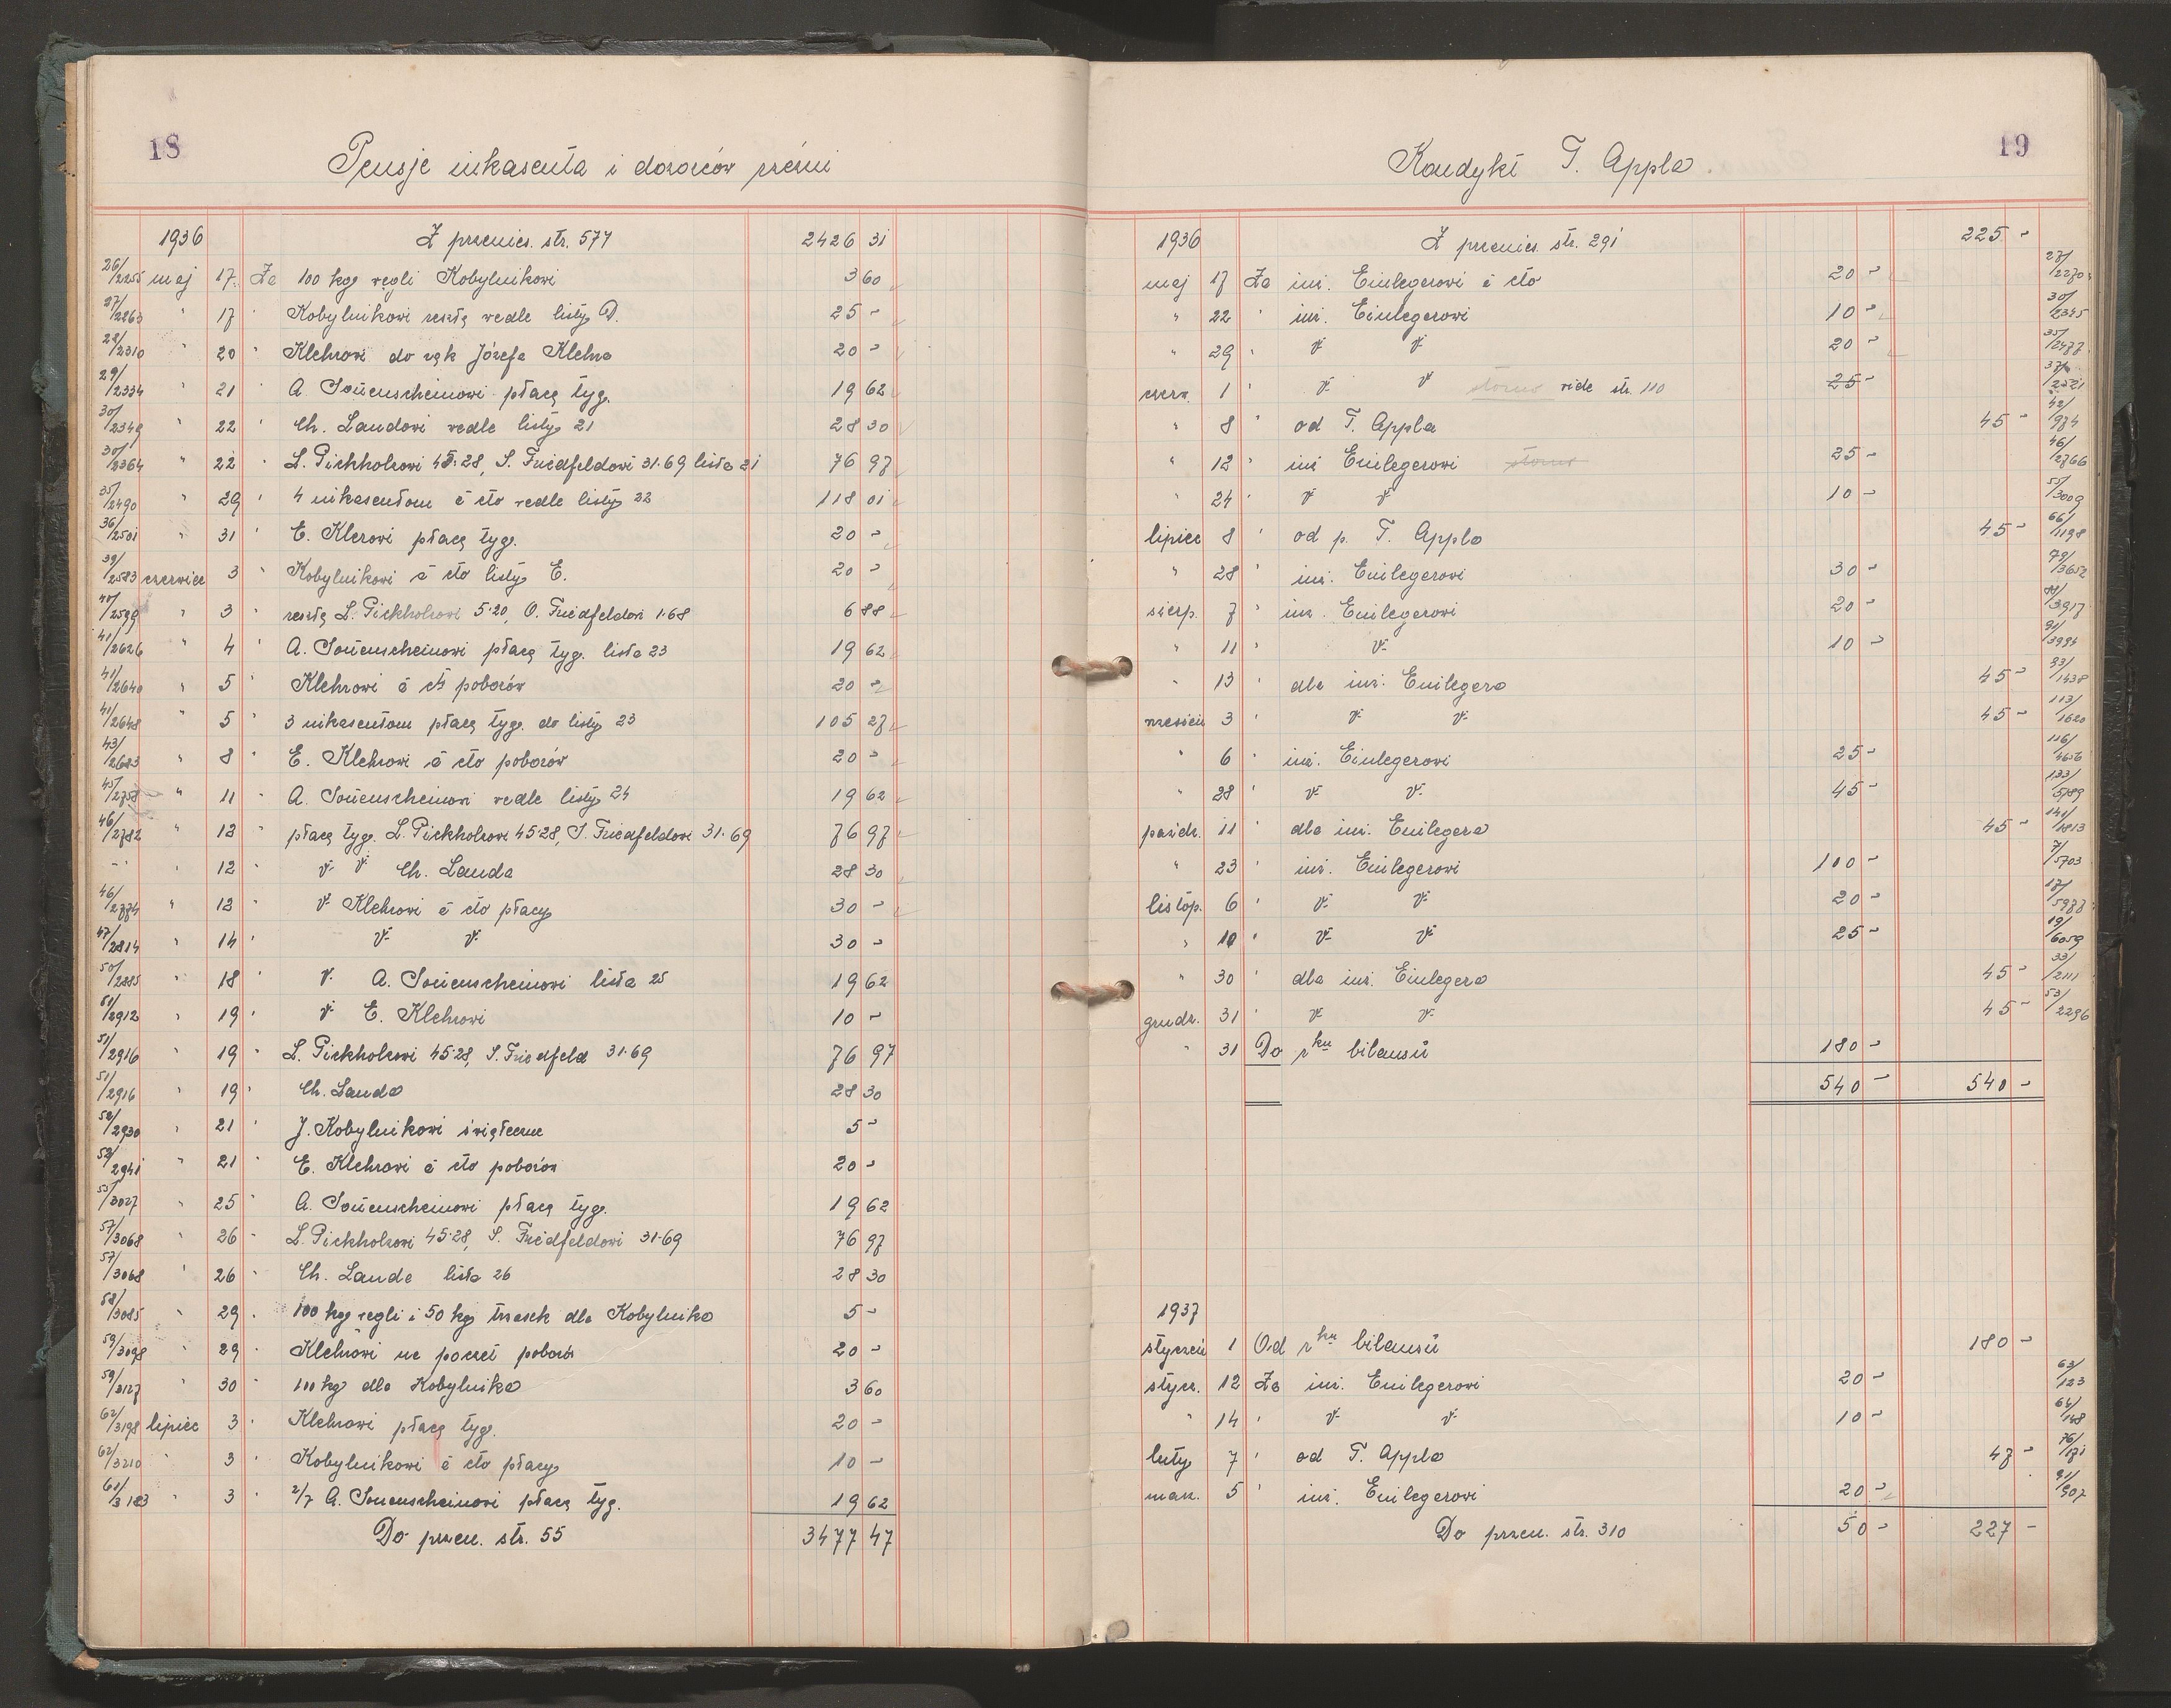 18
Pensje inkasenta i dozorców rzeźni
1936 Z przenies. str. 577 2426 31
26/2255 maj 17 Za 100 kg węgli Kobylnikowi 3 60
27/2263 " 17 " Kobylnikowi resztę wedle listy D. 25 -
28/2310 " 20 " Klehrowi do rąk Józefa Klehra 20 -
29/2334 " 21 " A. Sonenscheinowi płacę tyg. 19 62
30/2349 " 22 " Ch. Landowi wedle listy 21 28 30
30/2364 " 22 " L. Pickholzowi 45·28, S. Friedfeldowi 31·69 lista 21 76 97
35/2490 " 29 " 4 inkasentom á cto wedle listy 22 118 01
36/2501 " 31 " E. Klerowi płacę tyg. 20 -
39/2583 czerwiec 3 " Kobylnikowi á cto listy E. 20 -
40/2599 " 3 " resztę L. Pickholzowi 5·20, O. Friedfeldowi 1·68 6 88
41/2626 " 4 " A. Sonenscheinowi płacę tyg. lista 23 19 62
41/2640 " 5 " Klehrowi á cto poborów 20 -
41/2648 " 5 " 3 inkasentom płacę tyg. do listy 23 105 27
43/2683 " 8 " E. Klehrowi á cto poborów 20 -
45/2758 " 11 " A. Sonenscheinowi wedle listy 24 19 62
46/2782 " 12 " płacę tyg. L. Pickholzowi 45·28, S. Friedfeldowi 31·69 76 97
-" " 12 " " " Ch. Landa 28 30
46/2774 " 12 " " Klehrowi á cto płacy 30 -
47/2814 " 14 " " " 30 -
50/2885 " 18 " " A. Sonenscheinowi lista 25 19 62
51/2912 " 19 " " E. Klehrowi 10 -
51/2916 " 19 " L. Pickholzowi 45·28, S. Friedfeld 31·69 76 97
51/2916 " 19 " Ch. Landa 28 30
52/2930 " 21 " J. Kobylnikowi świąteczne 5 -
52/2941 " 21 " E. Klehrowi á cto poborów 20 -
55/3027 " 25 " A. Sonenscheinowi płacę tyg. 19 62
57/3068 " 26 " L. Pickholzowi 45·28, S. Friedfeldowi 31·69 76 97
57/3068 " 26 " Ch. Landa lista 26 28 30
58/3085 " 29 " 100 kg węgli i 50 kg trzasek dla Kobylnika 5 -
59/3098 " 29 " Klehrowi na poczet poborów 20 -
59/3127 " 30 " 100 kg dla Kobylnika 3 60
62/3198 lipiec 3 " Klehrowi płacę tyg. 20 -
62/3210 " 3 " Kobylnikowi á cto płacy 10 -
61/3183 " 3 " 2/7 A. Sonenscheinowi płacę tyg. 19 62
Do przen. str. 55 3477 47
19
Kondykt T. Appla.
1936 Z przenies. str. 291 225 -
maj 17 Za inż. Einlegerowi á cto 20 - 27/2270
" 22 " inż. Einlegerowi 10 - 30/2345
" 29 " " " 20 - 35/2477
czerw. 1 " " " storno vide str. 110 25 - 37/2521
" 8 " od T. Appla 45 - 42/974
" 12 " inż Einlegerowi storno 25 - 46/2766
" 24 " " " 10 - 55/3009
lipiec 8 " od p. T. Appla 45 - 66/1198
" 28 " inż. Einlegerowi 30 - 79/3652
sierp. 7 " inż. Einlegerowi 20 - 88/3917
" 11 " " 10 - 91/3994
" 13 " dla inż. Einlegera 45 - 93/1438
wrzesień 3 " " " 45 - 113/1620
" 6 " inż. Einlegerowi 25 - 116/4656
" 28 " " " 45 - 133/5189
paźdz. 11 " dla inż. Einlegera 45 - 141/1813
" 23 " inż. Einlegerowi 100 - 7/5703
listop. 6 " " " 20 - 17/5977
" 10 " " " 25 - 19/6059
" 30 " dla inż. Einlegera 45 - 33/2111
grudz. 31 " " " 45 - 53/2296
" 31 Do rku bilansu 180 -
540 - 540 -
1937
styczeń 1 Od rku bilansu 180 -
stycz. 12 Za inż. Einlegerowi 20 - 63/123
" 14 " " " 10 - 64/148
luty 7 " od T. Appla 47 - 76/171
marz. 5 " inż. Einlegerowi 20 - 91/907
Do przen. str. 310 50 - 227 -